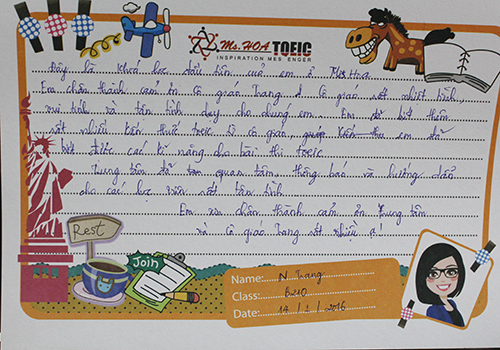 Ms. HOA TOEIC
INSPIRATION MESSENGER
Đây là khoá học đầu tiên của em ở Ms Hoa.
Em chân thành cảm ơn cô giáo Trang, cô giáo rất nhiệt tình,
vui tính và tận tình dạy cho chúng em. Em đã biết thêm
rất nhiều kiến thức toeic từ cô giáo, giúp em đã
biết được các kĩ năng cho bài thi toeic
Trung tâm đã quan tâm, thông báo và hướng dẫn
cho các học viên rất tận tình
Em xin chân thành cảm ơn trung tâm
và cô giáo Trang rất nhiều ạ!
Rest
Join
Name: N Trang
Class:
Date: 14 / 1 / 2016